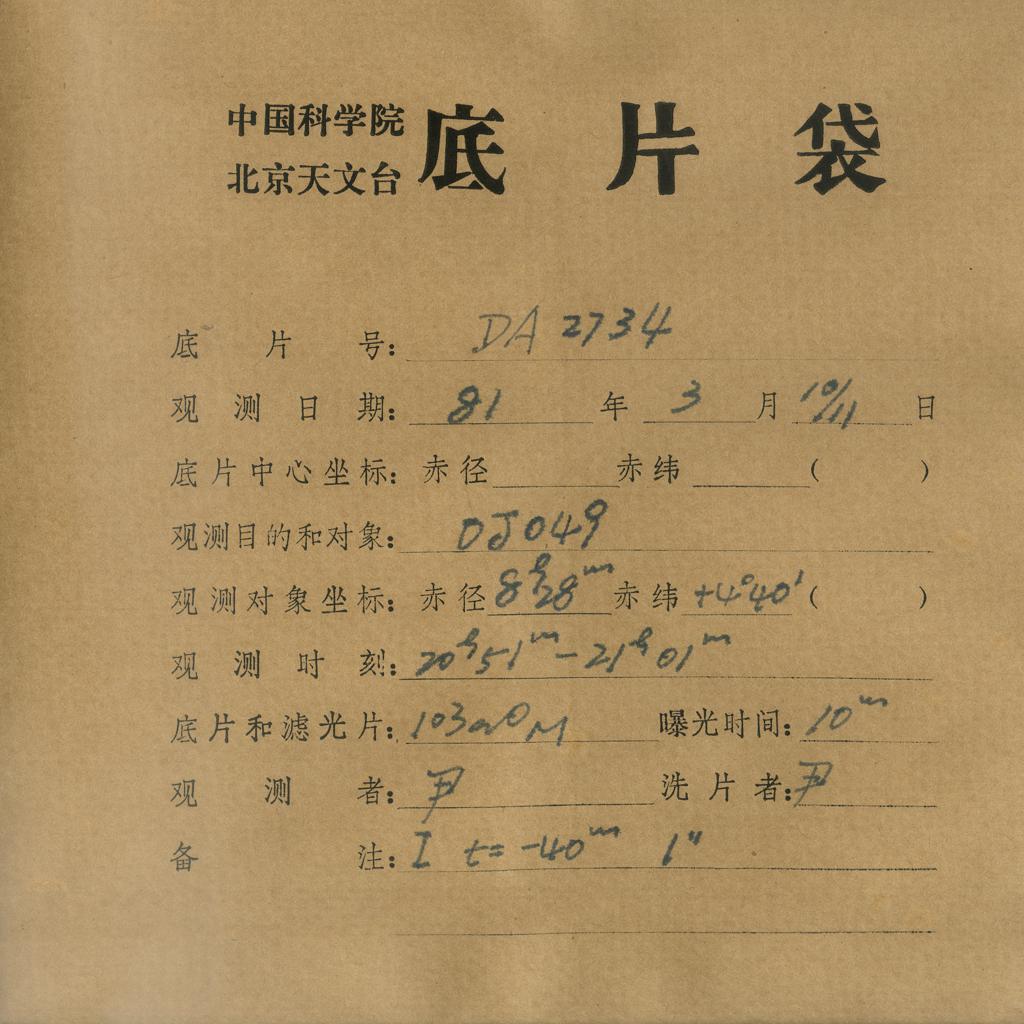 中国科学院
北京天文台 底片袋
底片号: DA 2734
观测日期: 81 年 3 月 10/11 日
底片中心坐标: 赤径 赤纬 ( )
观测目的和对象: OJ049
观测对象坐标: 赤径 8h28m 赤纬 +4°40' ( )
观测时刻: 20h51m-21h01m
底片和滤光片: 103aO M 曝光时间: 10m
观测者: 尹 洗片者: 尹
备注: I t=-40m 1"